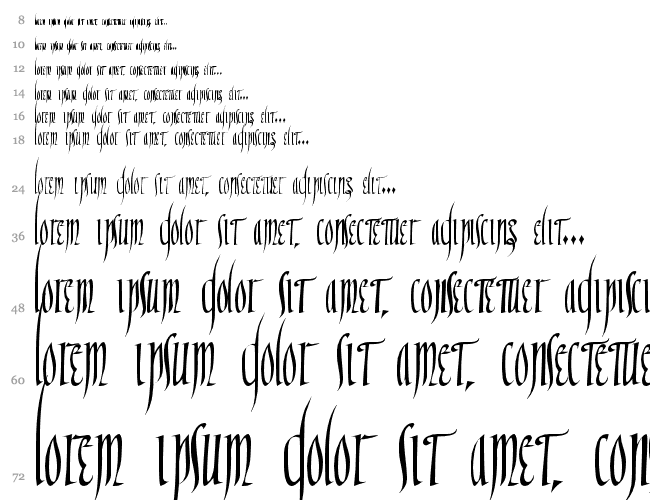 8 lorem ipsum dolor sit amet, consectetuer adipiscing elit...
10 lorem ipsum dolor sit amet, consectetuer adipiscing elit...
12 lorem ipsum dolor sit amet, consectetuer adipiscing elit...
14 lorem ipsum dolor sit amet, consectetuer adipiscing elit...
16 lorem ipsum dolor sit amet, consectetuer adipiscing elit...
18 lorem ipsum dolor sit amet, consectetuer adipiscing elit...
24 lorem ipsum dolor sit amet, consectetuer adipiscing elit...
36 lorem ipsum dolor sit amet, consectetuer adipiscing elit...
48 lorem ipsum dolor sit amet, consectetuer adipisci
60 lorem ipsum dolor sit amet, consectetue
72 lorem ipsum dolor sit amet, con